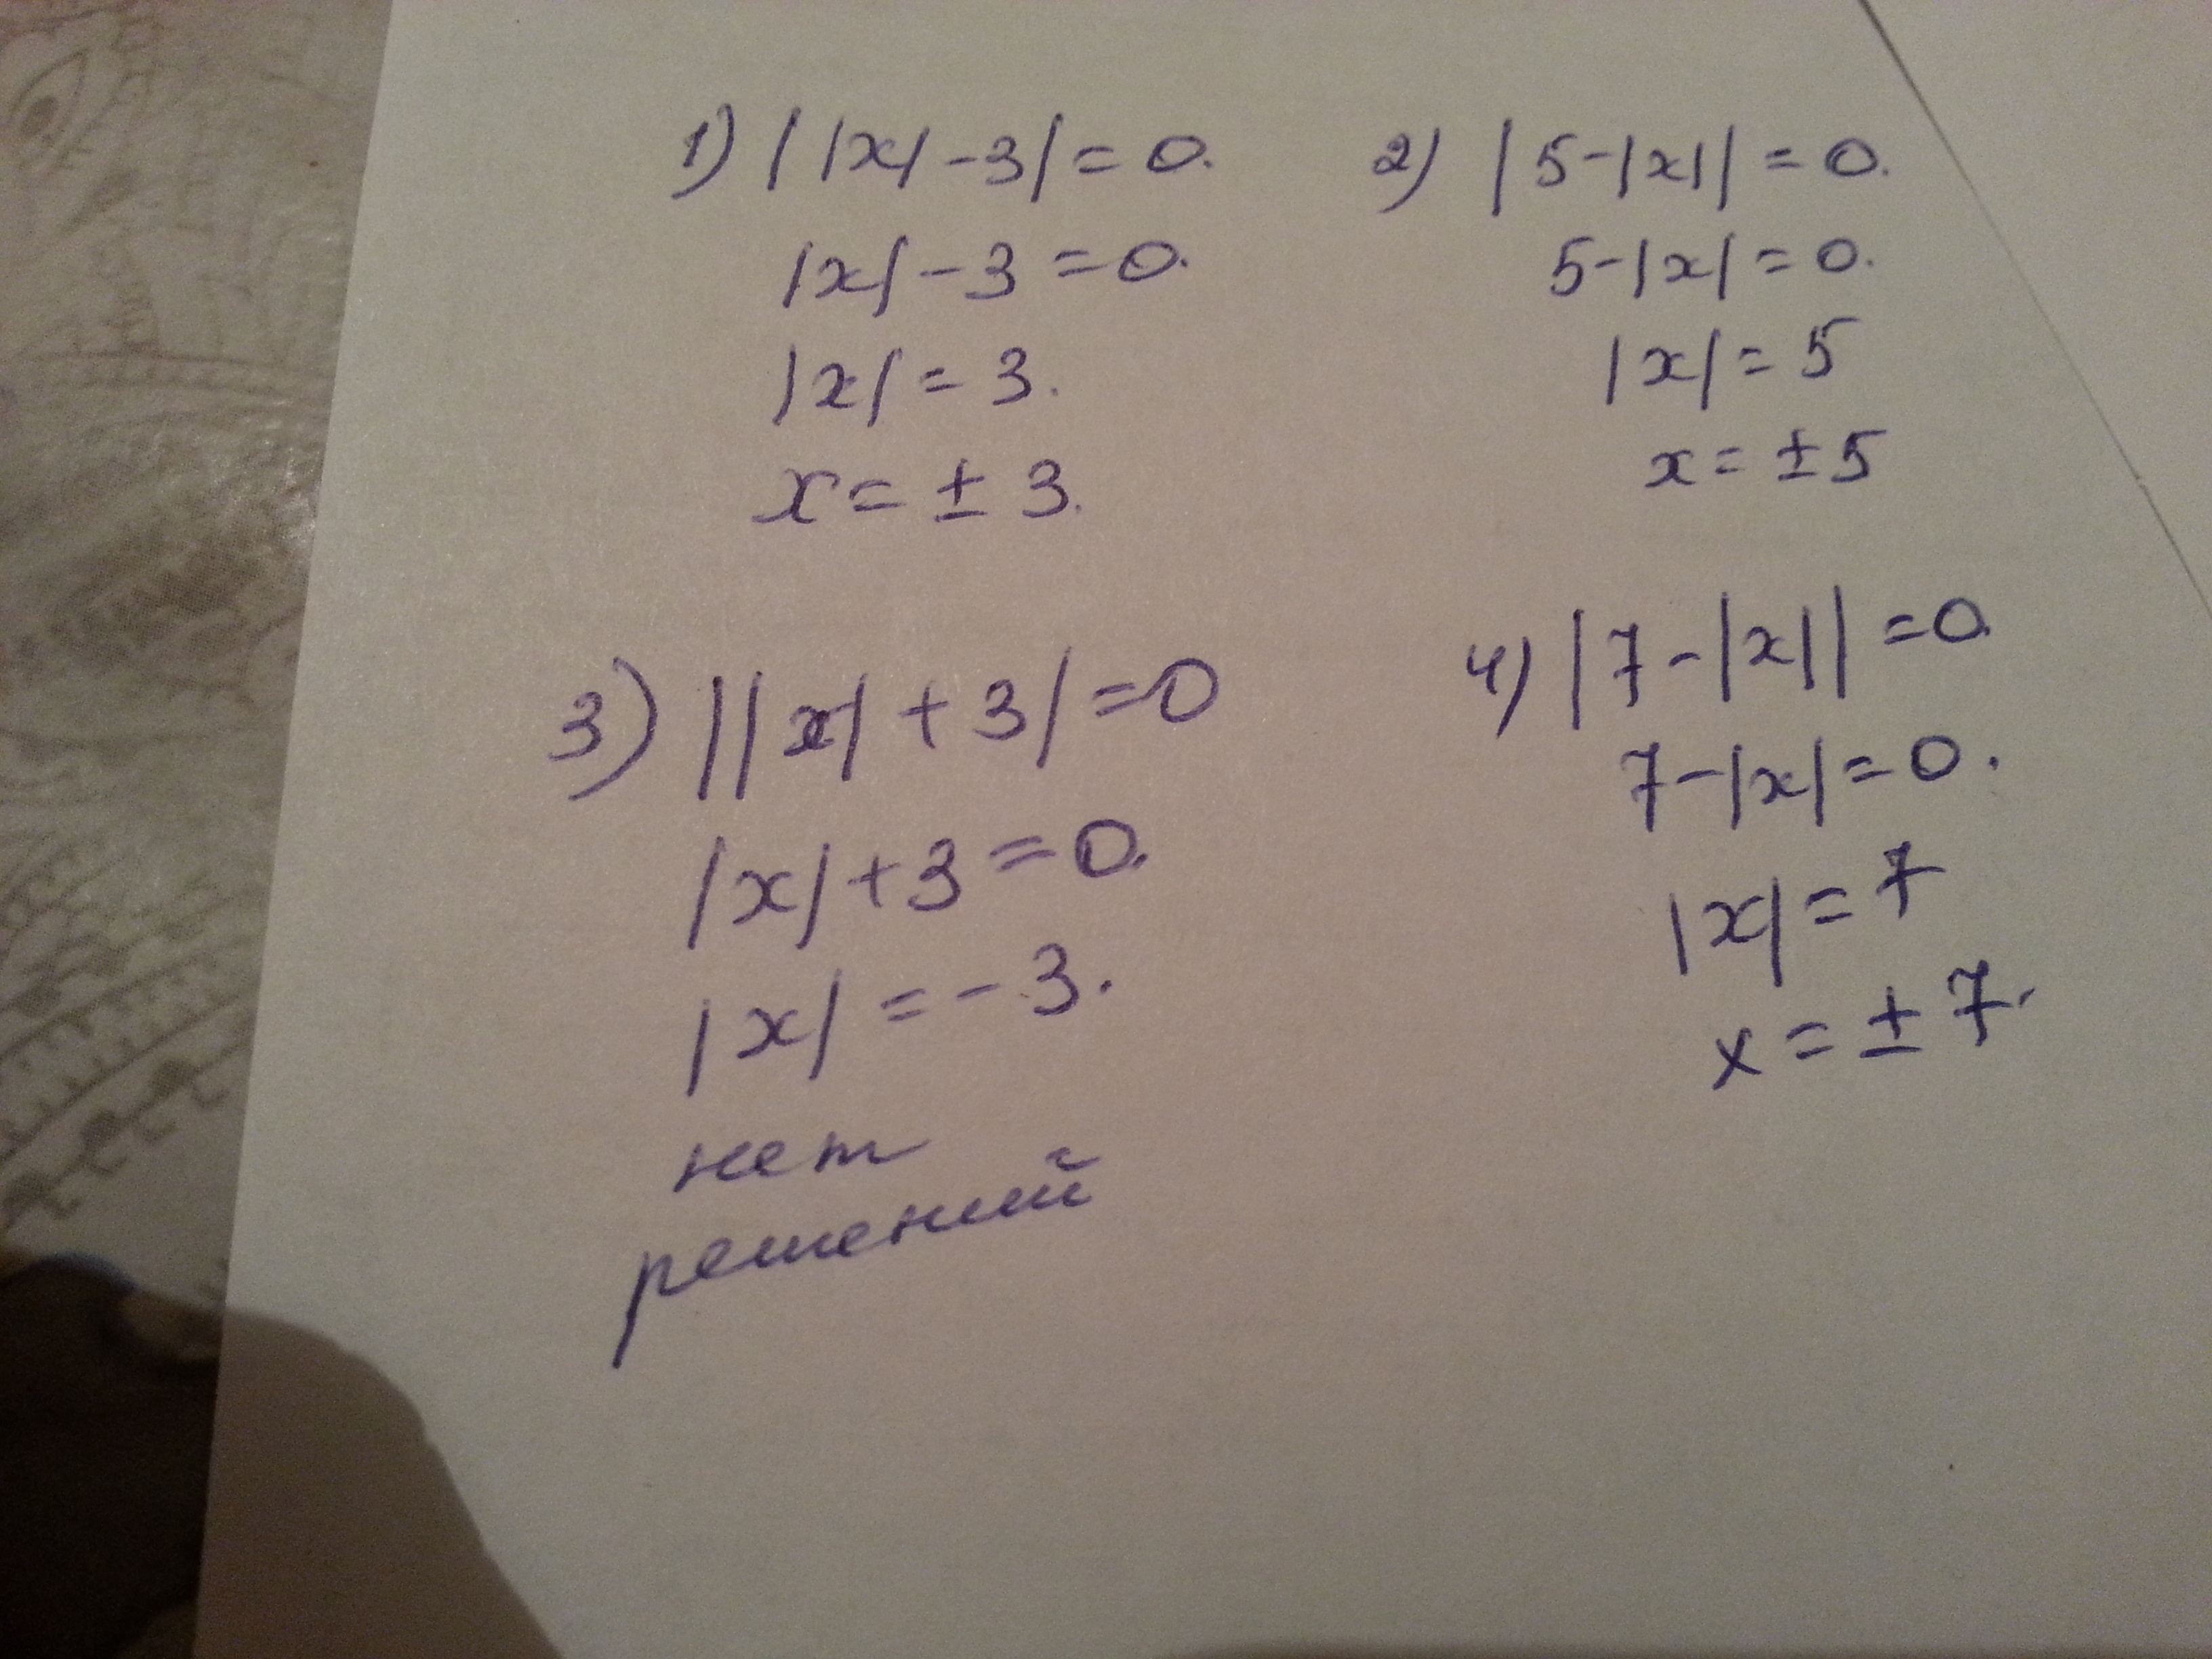 1) ||x|-3|=0.
|x|-3=0.
|x|=3.
x=±3.
2) |5-|x||=0.
5-|x|=0.
|x|=5
x=±5
3) ||x|+3|=0
|x|+3=0.
|x|=-3.
нет
решений
4) |7-|x||=0.
7-|x|=0.
|x|=7
x=±7.